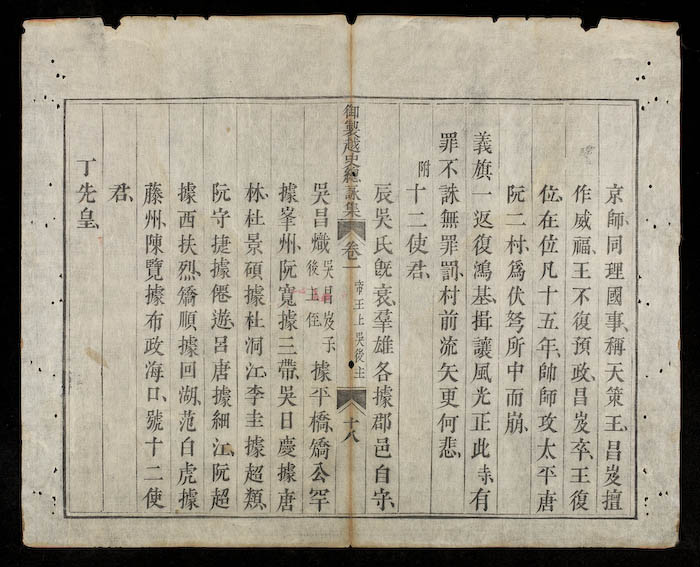 京師、同理國事、稱天策王、昌岌擅
作威福、王不復預政、昌岌卒、王復
位、在位凡十五年、帥師攻太平唐
阮二村、爲伏弩所中而崩、
義旗一返復鴻基、揖讓風光正此寺、有
罪不誅無罪罰、村前流矢更何悲、
附十二使君、
辰吳氏旣衰、羣雄各據郡邑自守、
御製越史總詠集
卷一
帝王上 吳後主
十八
吳昌熾吳昌岌子後主侄據平橋、矯公罕
據峯州、阮寬據三帶、吳日慶據唐
林、杜景碩據杜洞江、李圭據超類、
阮守捷據僊遊、呂唐據細江、阮超
據西扶烈、矯順據回湖、范白虎據
藤州、陳覽據布政海口、號十二使
君、
丁先皇、